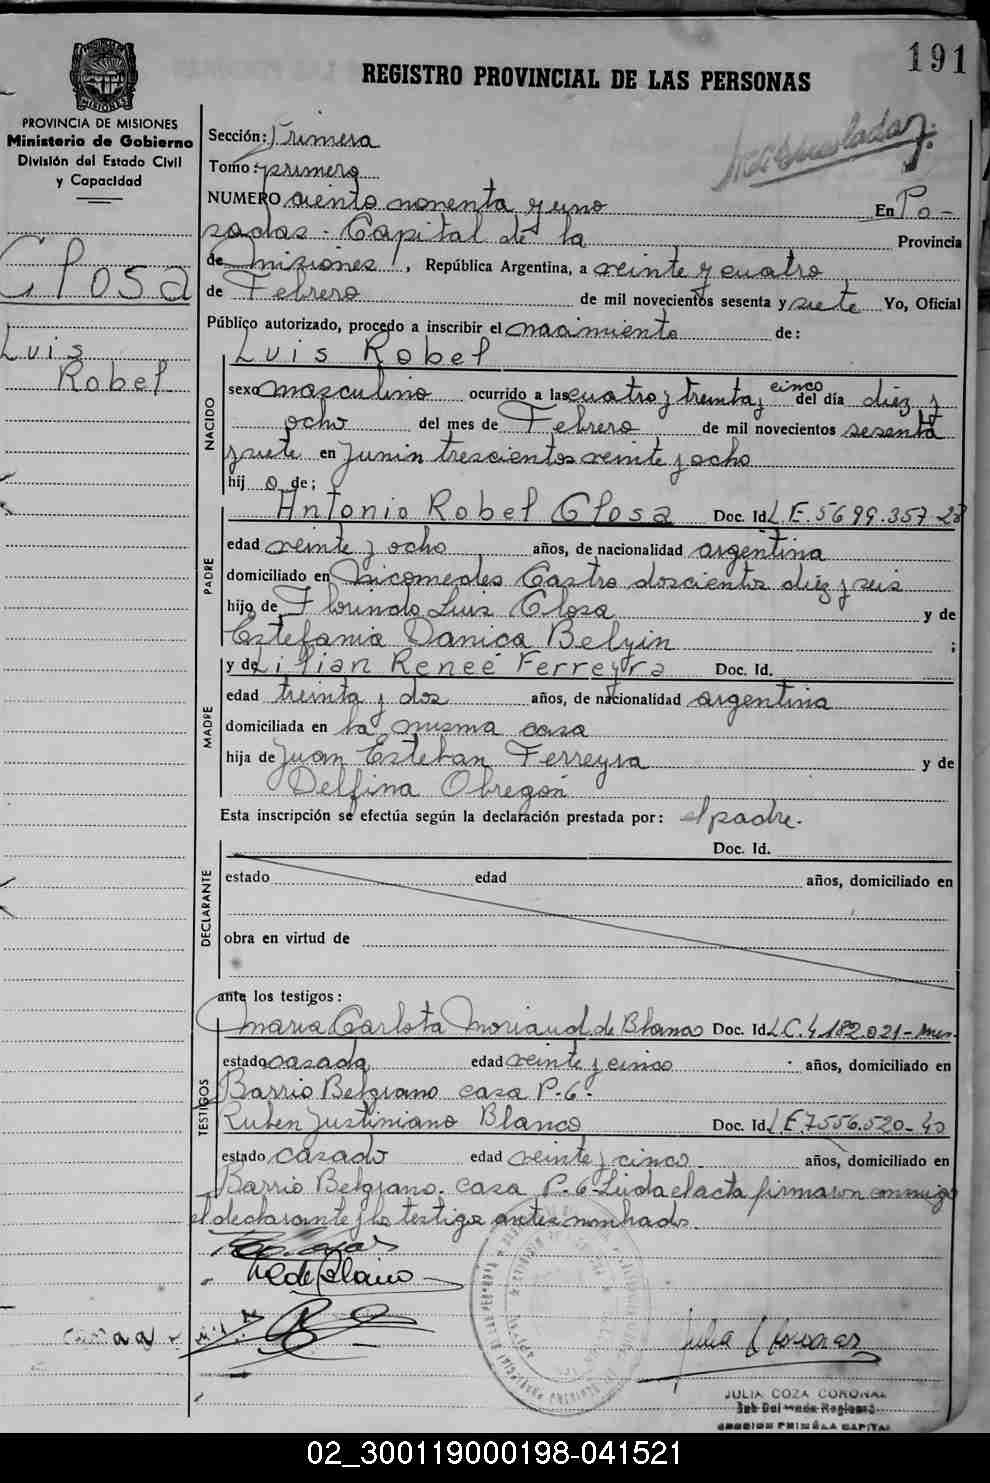 191
REGISTRO PROVINCIAL DE LAS PERSONAS
PROVINCIA DE MISIONES
Ministerio de Gobierno
División del Estado Civil
y Capacidad
Closa
Luis
Robel
Sección: Primera
Tomo: primero
NUMERO ciento noventa y uno En Po-
sadas - Capital de la Provincia
de Misiones, República Argentina, a veinte y cuatro
de Febrero de mil novecientos sesenta y siete Yo, Oficial
Público autorizado, procedo a inscribir el nacimiento de:
NACIDO
Luis Robel
sexo masculino ocurrido a las cuatro y treinta y cinco del día diez y
ocho del mes de Febrero de mil novecientos sesenta
y siete en Junin trescientos veinte y ocho
hij o de:
PADRE
Antonio Robel Closa Doc. Id. L.E. 5699.357-28
edad veinte y ocho años, de nacionalidad argentina
domiciliado en Nicomedes Castro doscientos diez y seis
hijo de Florindo Luis Closa y de
Estefania Danica Belyin ;
MADRE
y de Lilian Reneé Ferreyra Doc. Id.
edad treinta y dos años, de nacionalidad argentina
domiciliada en la misma casa
hija de Juan Esteban Ferreyra y de
Delfina Obregón
Esta inscripción se efectúa según la declaración prestada por: el padre.
DECLARANTE
Doc. Id.
estado edad años, domiciliado en
obra en virtud de
ante los testigos:
TESTIGOS
Maria Carlota Moriaud de Blanco Doc. Id. L.C. 4.182.021-
estado casada edad veinte y cinco años, domiciliado en
Barrio Belgrano casa P-6-
Ruben Justiniano Blanco Doc. Id. L.E. 7556.520-40
estado casado edad veinte y cinco años, domiciliado en
Barrio Belgrano. casa P-6- Leida el acta firmaron conmigo
el declarante y los testigos antes nombrados.
JULIA COZA CORONAL
SECCION PRIMERA CAPITAL
02_300119000198-041521